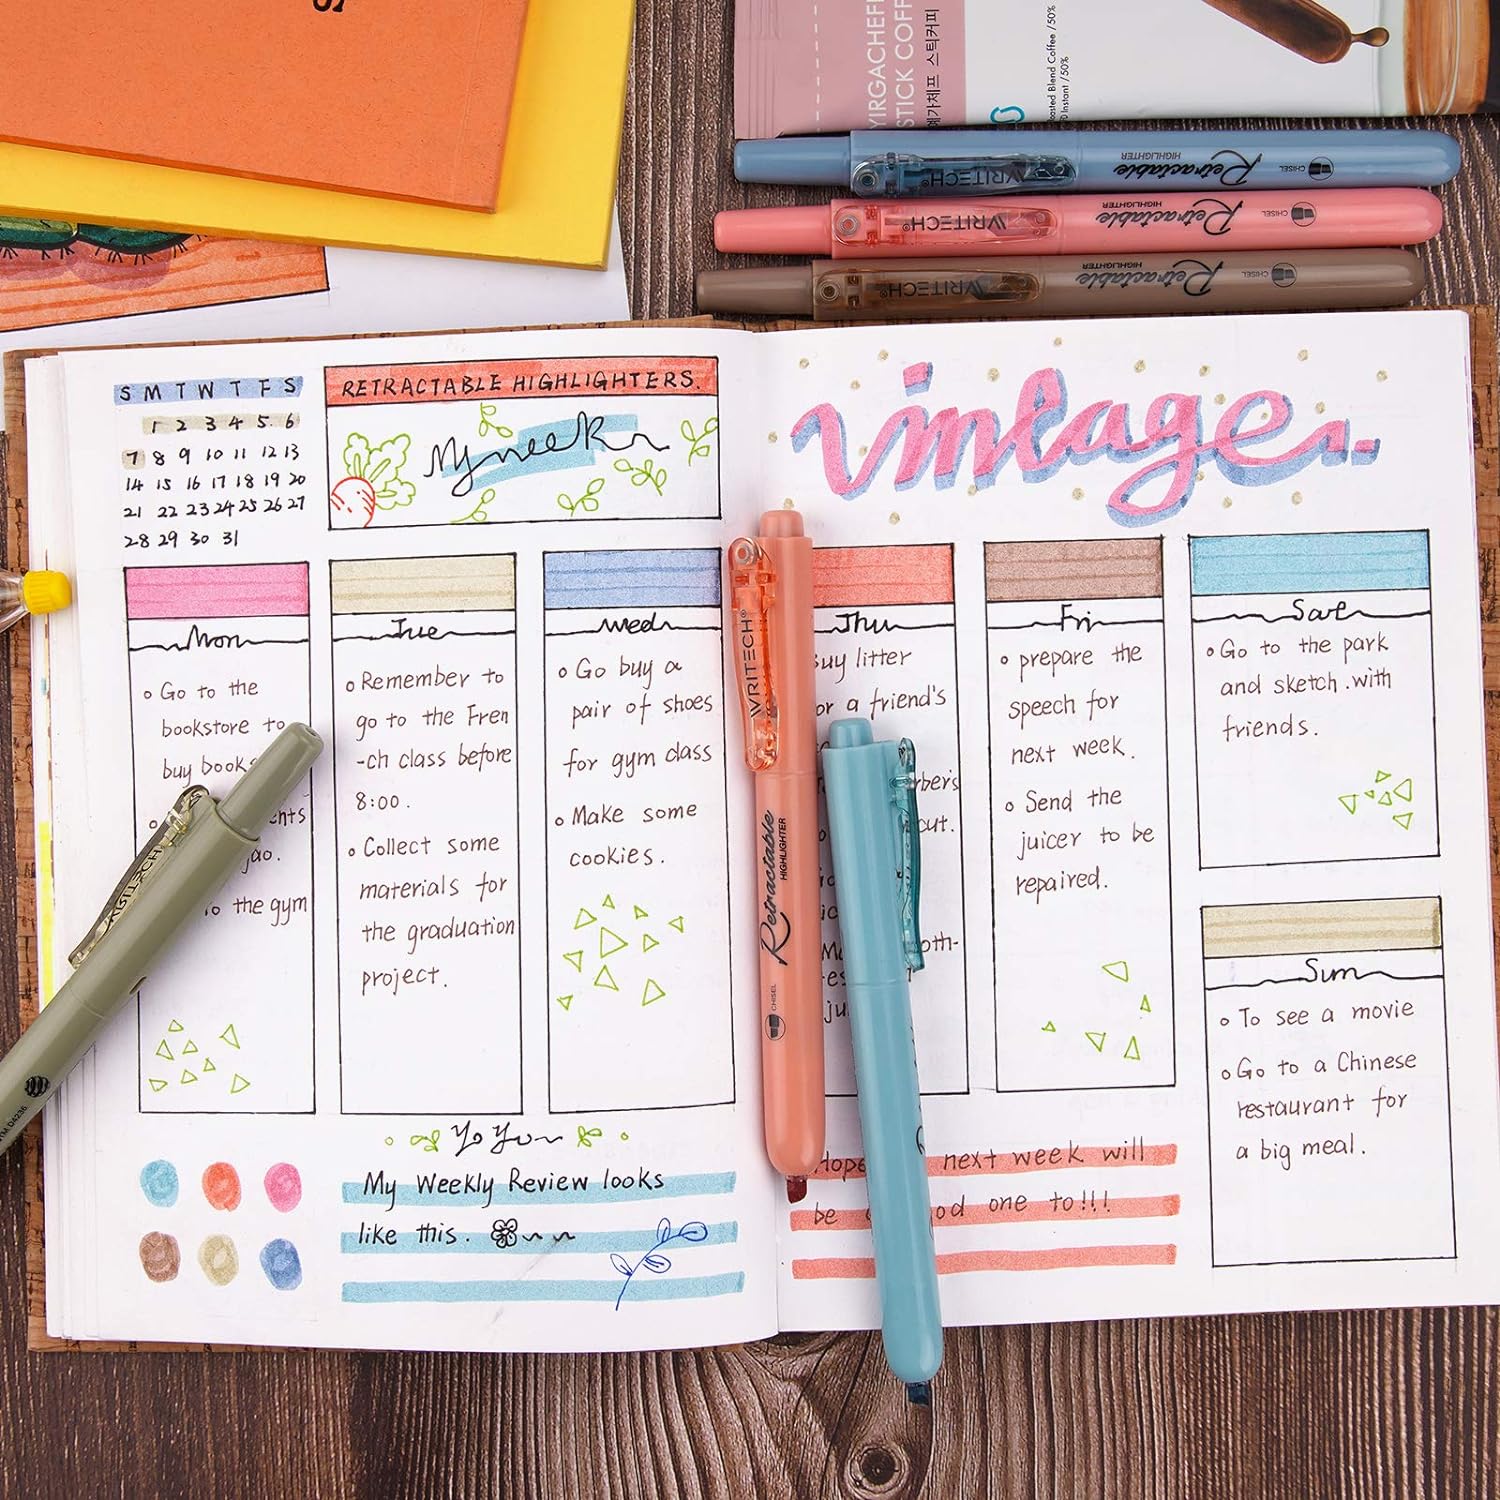 YIRGACHEFF
STICK COFF
예가체프 스틱커피
Roasted Blend Coffee / 50%
Instant / 50%
WRITECH®
Retractable
HIGHLIGHTER
CHISEL
WRITECH®
Retractable
HIGHLIGHTER
CHISEL
WRITECH®
Retractable
HIGHLIGHTER
CHISEL
S M T W T F S
1 2 3 4 5. 6
7 8 9 10 11 12 13
14 15 16 17 18 19 20
21 22 23 24 25 26 27
28 29 30 31
RETRACTABLE HIGHLIGHTERS.
My week
vintage
Mon
Go to the
bookstore to
buy book
ents
jao.
to the gym
Tue
Remember to
go to the Fren
-ch class before
8:00.
Collect some
materials for
the graduation
project.
Wed
Go buy a
pair of shoes
for gym class
Make some
cookies.
Thu
Buy litter
or a friend's
rber's
cut.
oth-
Fri
prepare the
speech for
next week.
Send the
juicer to be
repaired.
Sat
Go to the park
and sketch.with
friends.
Sun
To see a movie
Go to a Chinese
restaurant for
a big meal.
WRITECH®
Retractable
HIGHLIGHTER
CHISEL
WRITECH
ASTM D4236
YoYo
My Weekly Review looks
like this.
Hope next week will
be ood one to!!!